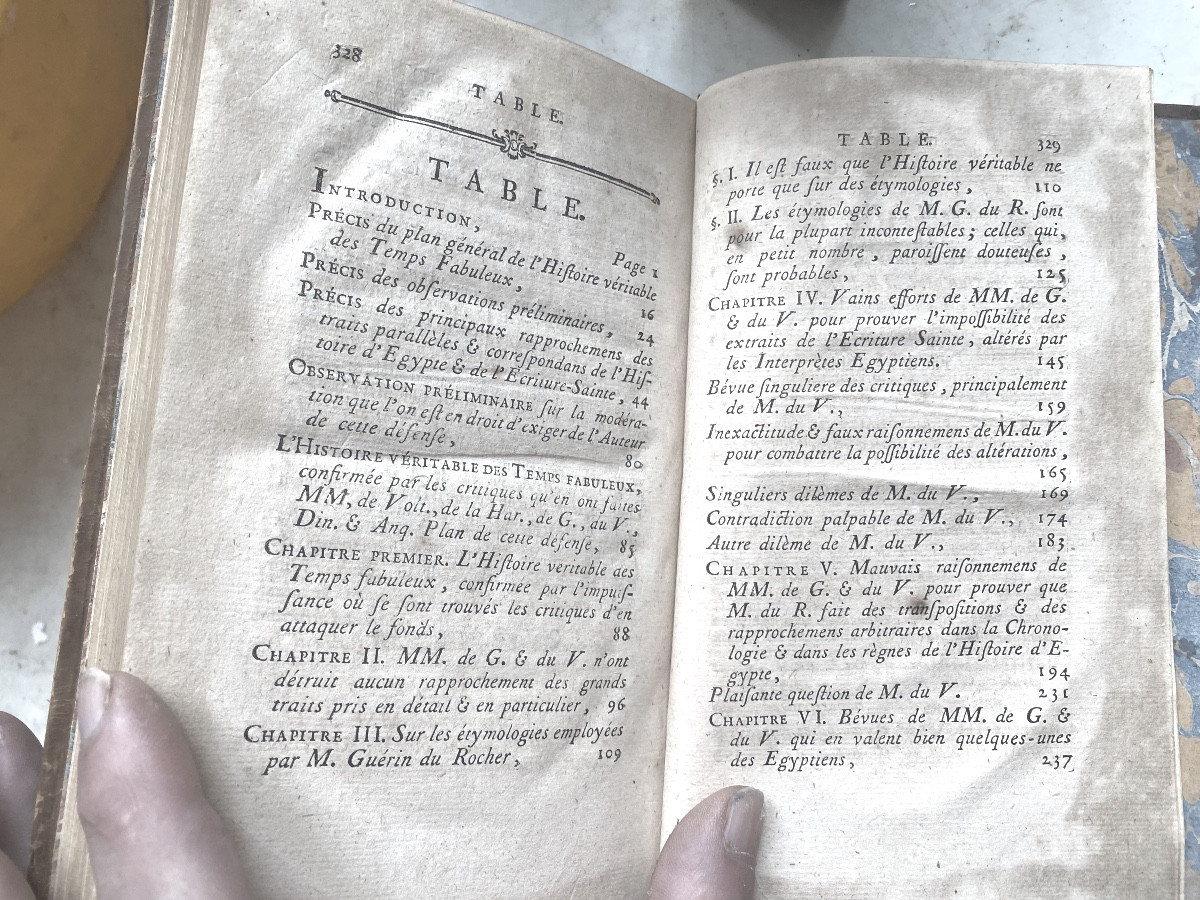 328
TABLE.
TABLE.
INTRODUCTION, Page 1
PRÉCIS du plan général de l'Hiſtoire véritable
des Temps Fabuleux, 16
PRÉCIS des obſervations préliminaires, 24
PRÉCIS des principaux rapprochemens des
traits parallèles & correſpondans de l'Hiſ-
toire d'Egypte & de l'Ecriture-Sainte, 44
OBSERVATION PRÉLIMINAIRE ſur la modéra-
tion que l'on eſt en droit d'exiger de l'Auteur
de cette défenſe, 80
L'HISTOIRE VÉRITABLE DES TEMPS FABULEUX,
confirmée par les critiques qu'en ont faites
MM, de Volt., de la Har., de G., du V.,
Din. & Anq. Plan de cette défenſe, 85
CHAPITRE PREMIER. L'Hiſtoire véritable des
Temps fabuleux, confirmée par l'impuiſ-
ſance où ſe ſont trouvés les critiques d'en
attaquer le fonds, 88
CHAPITRE II. MM. de G. & du V. n'ont
détruit aucun rapprochement des grands
traits pris en détail & en particulier, 96
CHAPITRE III. Sur les étymologies employées
par M. Guérin du Rocher, 109
TABLE. 329
§. I. Il eſt faux que l'Hiſtoire véritable ne
porte que ſur des étymologies, 110
§. II. Les étymologies de M. G. du R. ſont
pour la plupart inconteſtables; celles qui,
en petit nombre, paroiſſent douteuſes,
ſont probables, 125
CHAPITRE IV. Vains efforts de MM. de G.
& du V. pour prouver l'impoſſibilité des
extraits de l'Ecriture Sainte, altérés par
les Interprètes Egyptiens. 145
Bévue ſinguliere des critiques, principalement
de M. du V., 159
Inexactitude & faux raiſonnemens de M. du V.
pour combattre la poſſibilité des altérations,
165
Singuliers dilèmes de M. du V., 169
Contradiction palpable de M. du V., 174
Autre dilème de M. du V., 183
CHAPITRE V. Mauvais raiſonnemens de
MM. de G. & du V. pour prouver que
M. du R. fait des tranſpoſitions & des
rapprochemens arbitraires dans la Chrono-
logie & dans les règnes de l'Hiſtoire d'E-
gypte, 194
Plaiſante queſtion de M. du V. 231
CHAPITRE VI. Bévues de MM. de G. &
du V. qui en valent bien quelques-unes
des Egyptiens, 237